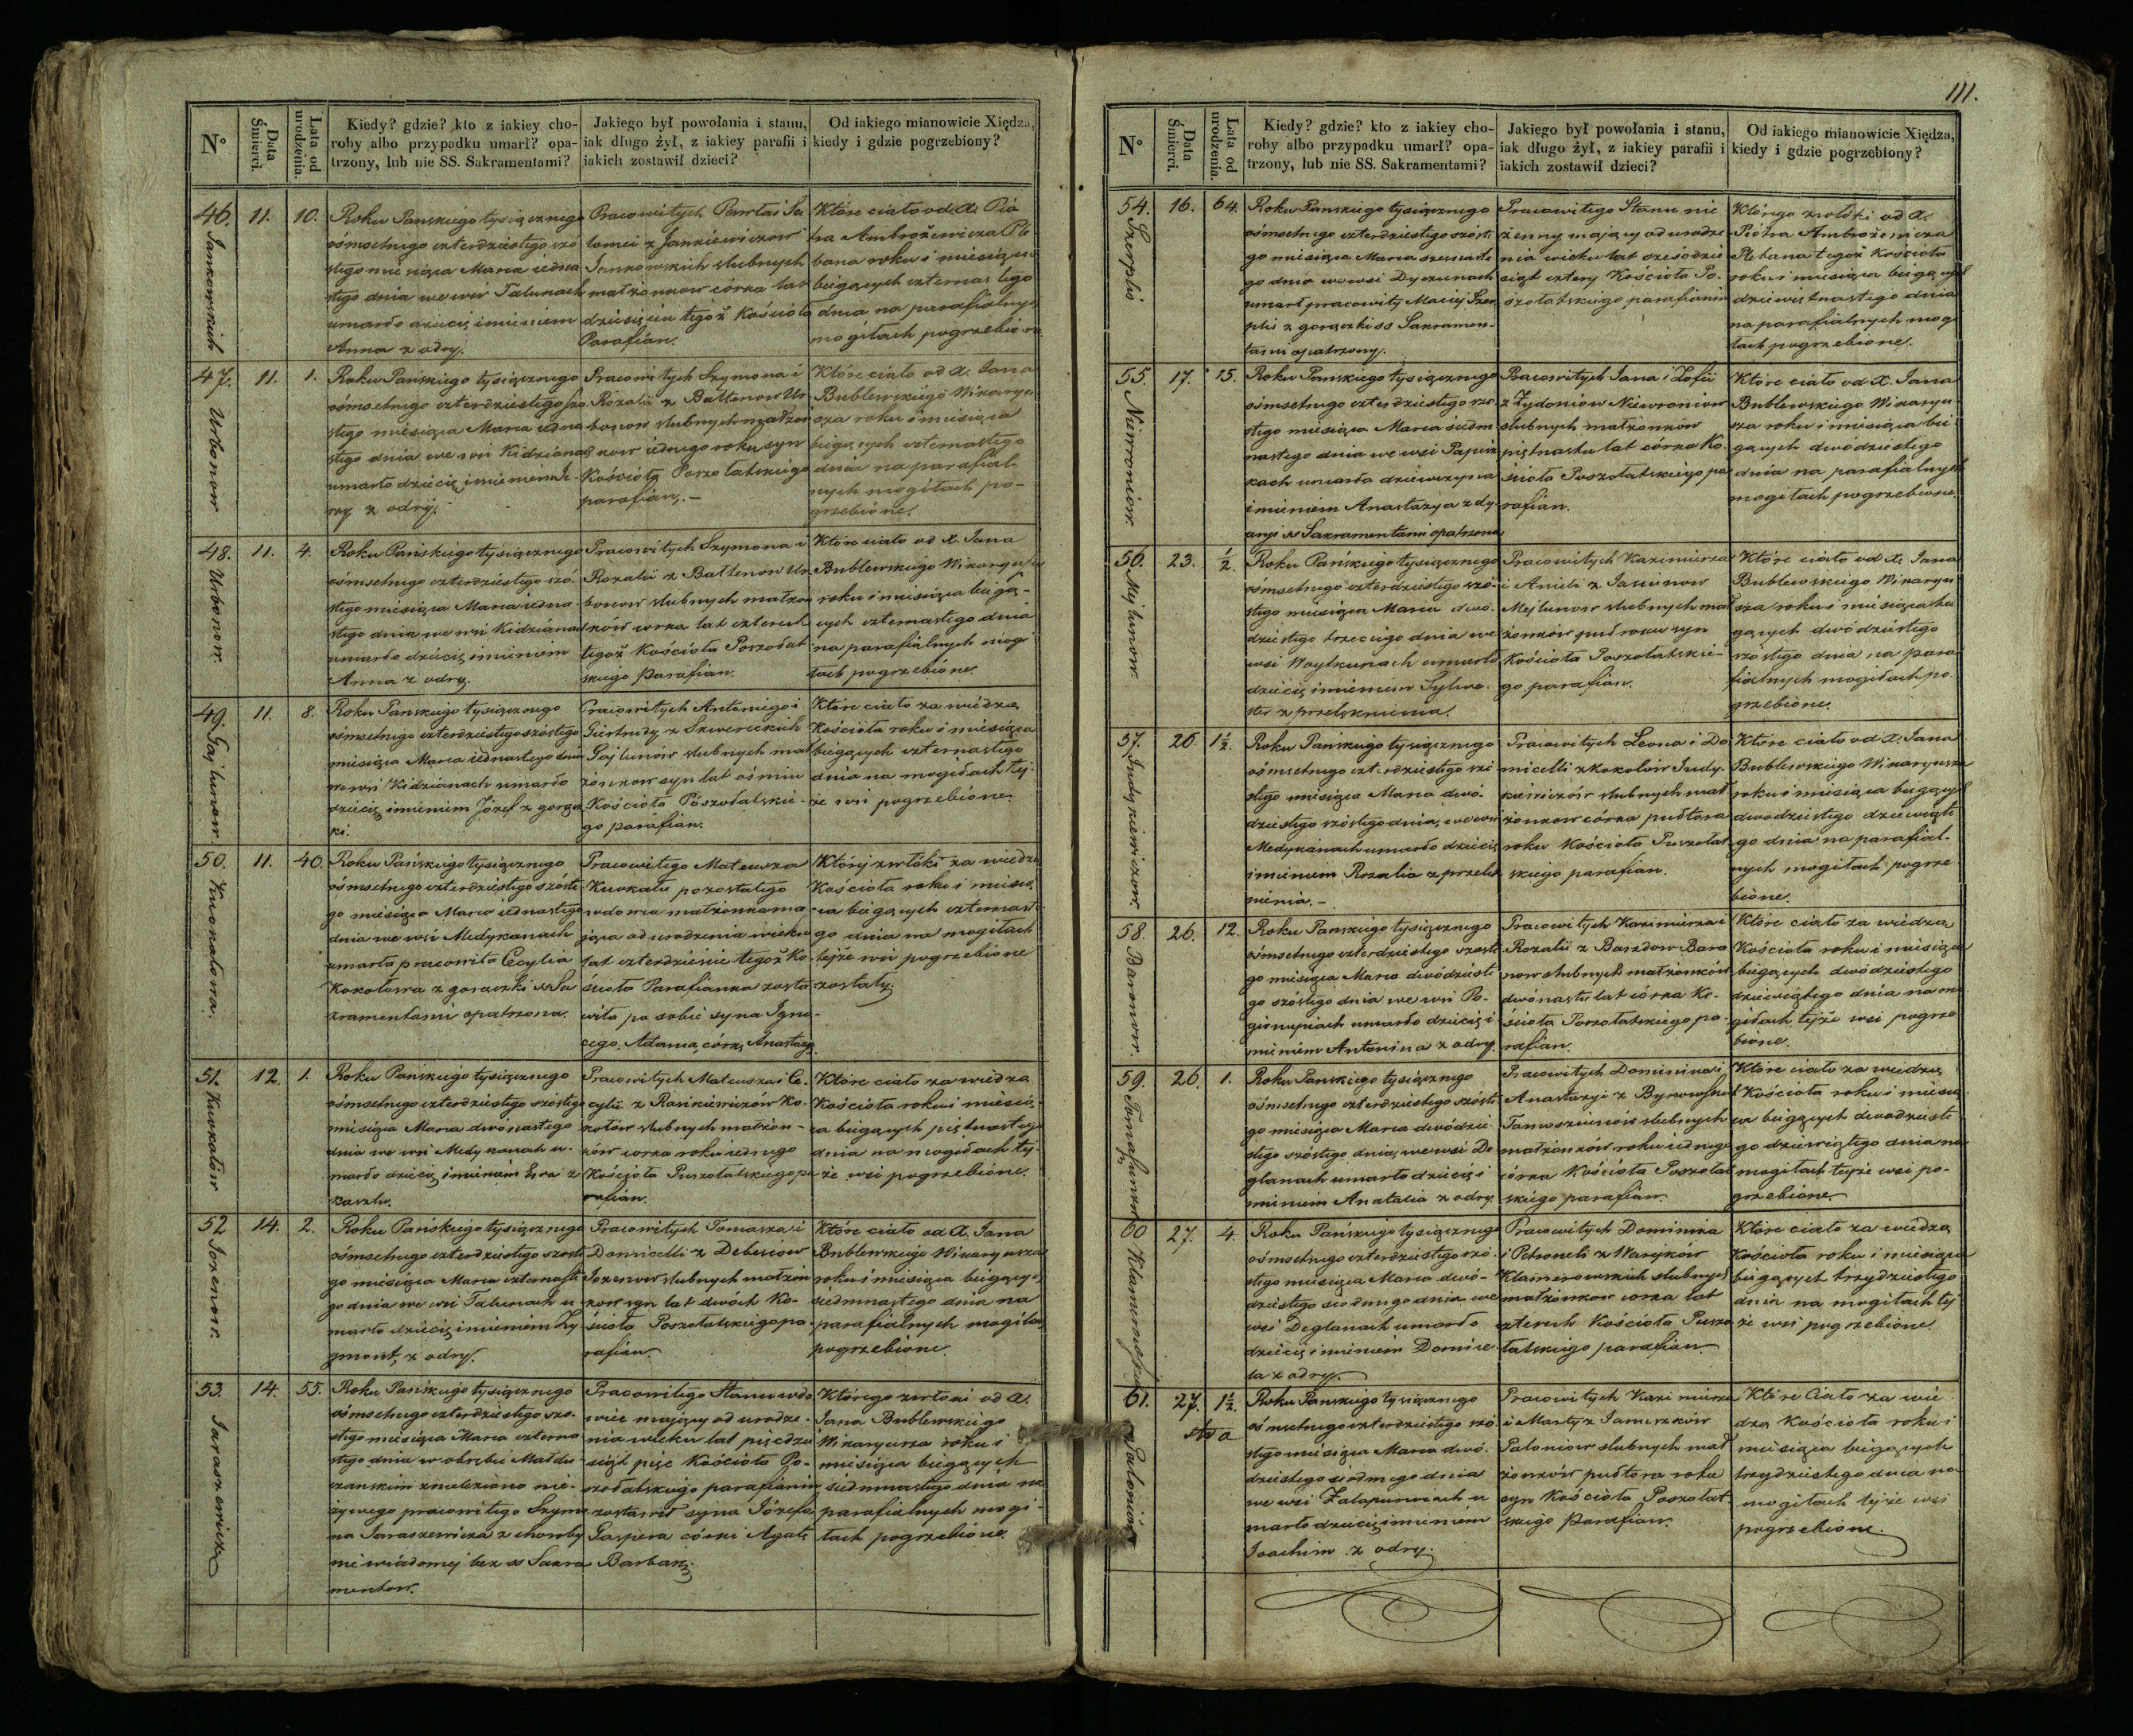 111.
N°
Data Śmierci.
Lata od urodzenia.
Kiedy? gdzie? kto z iakiey cho-
roby albo przypadku umarł? opa-
trzony, lub nie SS. Sakramentami?
Jakiego był powołania i stanu,
iak długo żył, z iakiey parafii i
iakich zostawił dzieci?
Od iakiego mianowicie Xiędza,
kiedy i gdzie pogrzebiony?
46. Jankowskich
11.
10.
Roku Pańskiego tysiącznego
ośmsetnego czterdziestego szó
stego miesiąca Marca iedna
stego dnia we wsi Talunach
umarło dziecię imieniem
Anna z odry.
Pracowitych Pawła i Sa
lomei z Jankiewiczow
Jankowskich ślubnych
małżonkow córka lat
dziesięciu tegoż Kościoła
Parafian.
Które ciało od X. Pio
tra Ambrożewicza Ple
bana roku i miesiąca
bieżących czternastego
dnia na parafialnych
mogiłach pogrzebione
47. Urbonow
11.
1.
Roku Pańskiego tysiącznego
ośmsetnego czterdziestego szo
stego miesiąca Marca iedna
stego dnia we wsi Kidzianach
umarło dziecię imieniem
z odry.
Pracowitych Szymona i
Rozalii z Baltenow Ur
bonow ślubnych małżon
kow iednego roku syn
Kościoła Poszołatskiego
parafian.
Które ciało od X. Jana
Bublewskiego Wikaryu
sza roku i miesiąca
bieżących czternastego
dnia na parafial-
nych mogiłach po-
grzebione.
48. Urbonow.
11.
4.
Roku Pańskiego tysiącznego
ośmsetnego czterdziestego szó
stego miesiąca Marca iedna-
stego dnia we wsi Kidzianach
umarło dziecię imieniem
Anna z odry.
Pracowitych Szymona i
Rozalii z Baltenow Ur
bonow ślubnych małżon
ków corka lat czterech
tegoż Kościoła Poszołat
skiego Parafian.
Które ciało od X. Jana
Bublewskiego Wikaryusza
roku i miesiąca bieżą-
cych czternastego dnia
na parafialnych mogi
łach pogrzebione.
49. Gajlunow
11.
8.
Roku Pańskiego tysiącznego
ośmsetnego czterdziestego szóstego
miesiąca Marca iednastego dnia
we wsi Kidzianach umarło
dziecię imieniem Józef z gorącz
ki.
Pracowitych Antoniego i
Giertrudy z
Gajlunów ślubnych mał
żonkow syn lat ośmiu
Kościoła Poszołatskie-
go parafian.
Które ciało za wiedzą
Kościoła roku i miesiąca
bieżących czternastego
dnia na mogiłach tej-
że wsi pogrzebione.
50.
11.
40.
Roku Pańskiego tysiącznego
ośmsetnego czterdziestego szóste
go miesiąca Marca iednastego
dnia we wsi Medykanach
umarła pracowita Cecylia
z gorączki SS Sa
kramentami opatrzona.
Pracowitego Mateusza
pozostałego
wdowca małżonka ma
jąca od urodzenia wieku
lat czterdzieście tegoż Ko
ścioła Parafianka zosta
wiła po sobie syna Igna-
cego, Adama, córkę Anastazyą.
Której zwłóki za wiedzą
Kościoła roku i miesią
ca bieżących czternaste
go dnia na mogiłach
tejże wsi pogrzebione
zostały.
51.
12.
1.
Roku Pańskiego tysiącznego
ośmsetnego czterdziestego szóstego
miesiąca Marca dwónastego
dnia we wsi Medykanach u-
marło dziecię imieniem Ewa z
kaszlu.
Pracowitych Mateusza i Ce-
cylii z Rasikiewiczów
ślubnych małżon-
ków corka roku iednego
Kościoła Poszołatskiego pa
rafian.
Które ciało za wiedzą
Kościoła roku i miesią
ca bieżących piętnastego
dnia na mogiłach tej-
że wsi pogrzebione.
52. Jozenow.
14.
2.
Roku Pańskiego tysiącznego
ośmsetnego czterdziestego szóste
go miesiąca Marca czternaste
go dnia we wsi Talunach u
marło dziecię imieniem Zy
gmont, z odry.
Pracowitych Tomasza i
Domicelli z Debesiow
Jozenow ślubnych małżon
kow syn lat dwóch Ko-
ścioła Poszołatskiego pa
rafian.
Które ciało od X. Jana
Bublewskiego Wikaryusza
roku i miesiąca bieżących
siedmnastego dnia na
parafialnych mogiłach
pogrzebione.
53. Jaraszewicza
14.
55.
Roku Pańskiego tysiącznego
ośmsetnego czterdziestego szo-
stego miesiąca Marca czterna
stego dnia w obrębie
znaleziono nie-
żywego pracowitego Szymo
na Jaraszewicza z choroby
niewiadomej bez SS Sakra
mentow.
Pracowitego Stanu wdo
wiec mający od urodze-
nia wieku lat pięćdzie
siąt pięc Kościoła Po-
szołatskiego parafianin
zostawił syna Józefa,
Gaspera córki Agatę
Barbarę.
Którego zwłoki od X.
Jana Bublewskiego
Wikaryusza roku i
miesiąca bieżących
siedmnastego dnia na
parafialnych mogi-
łach pogrzebione.
N°
Data Śmierci.
Lata od urodzenia.
Kiedy? gdzie? kto z iakiey cho-
roby albo przypadku umarł? opa-
trzony, lub nie SS. Sakramentami?
Jakiego był powołania i stanu,
iak długo żył, z iakiey parafii i
iakich zostawił dzieci?
Od iakiego mianowicie Xiędza,
kiedy i gdzie pogrzebiony?
54. Szerplis
16.
64.
Roku Pańskiego tysiącznego
ośmsetnego czterdziestego szóste
go miesiąca Marca szesnaste
go dnia we wsi Dyczunach
umarł pracowity Maciej Szer
plis z gorączki SS Sakramen-
tami opatrzony.
Pracowitego Stanu nie
żenny mający od urodze
nia wieku lat sześćdzie
siąt cztery Kościoła Po-
szołatskiego parafianin
Którego zwłóki od X.
Piotra Ambrożewicza
Plebana tegoż Kościoła
roku i miesiąca bieżących
dziewiętnastego dnia
na parafialnych mogi
łach pogrzebione.
55. Niewroniow
17.
15.
Roku Pańskiego tysiącznego
ośmsetnego czterdziestego szo-
stego miesiąca Marca siedm
nastego dnia we wsi Papisz
kach umarła dziewczyna
imieniem Anastazya z dy
aryi SS Sakramentami opatrzona
Pracowitych Jana i Zofii
z Zydoniow Niewroniow
ślubnych małżonkow
piętnastu lat córka Ko-
ścioła Poszołatskiego pa
rafian.
Które ciało od X. Jana
Bublewskiego Wikaryu
sza roku i miesiąca bie-
żących dwódziestego
dnia na parafialnych
mogiłach pogrzebione.
56. Mejlunow
23.
½
Roku Pańskiego tysiącznego
ośmsetnego czterdziestego szó-
stego miesiąca Marca dwó-
dziestego trzeciego dnia we
wsi Woytkunach umarło
dziecię imieniem Sylwe-
ster z przelęknienia.
Pracowitych Kazimierza
i Anieli z Jasiunow
Mejlunow ślubnych mał
żonków puł roku syn
Kościoła Poszołatskie-
go parafian.
Które ciało od X. Jana
Bublewskiego Wikaryu
sza roku i miesiąca bie
żących dwódziestego
szóstego dnia na para
fialnych mogiłach po-
grzebione.
57. Judykiewiczow
26.
1½.
Roku Pańskiego tysiącznego
ośmsetnego czterdziestego szó
stego miesiąca Marca dwó-
dziestego szóstego dnia, we wsi
Medykanach umarło dziecię
imieniem Rozalia z przelęk
nienia.
Pracowitych Leona i Do
micelli z Kokolów Judy-
kiewiczów ślubnych mał
żonkow córka pułtora
roku Kościoła Poszołat
skiego parafian.
Które ciało od X. Jana
Bublewskiego Wikaryusza
roku i miesiąca bieżących
dwodziestego dziewiąte
go dnia na parafial-
nych mogiłach pogrze
bione.
58. Baronow.
26.
12.
Roku Pańskiego tysiącznego
ośmsetnego czterdziestego szoste
go miesiąca Marca dwódzieste
go szóstego dnia we wsi Po-
giernupiach umarło dziecię i
mieniem Antonina z odry.
Pracowitych Kazimierza i
Rozalii z Barzdow Baro
now ślubnych małżonków
dwónastu lat córka Ko-
ścioła Poszołatskiego pa-
rafian.
Które ciało za wiedzą
Kościoła roku i miesiąca
bieżących dwódziestego
dziewiątego dnia na mo
giłach tejże wsi pogrze
bione.
59.
26.
1.
Roku Pańskiego tysiącznego
ośmsetnego czterdziestego szóste
go miesiąca Marca dwódzie-
stego szóstego dnia, we wsi De
glanach umarło dziecię i
mieniem Anatalia z odry.
Pracowitych Dominika i
Anastazyi z
Tamoszunów ślubnych
małżonków roku iednego
córka Kościoła Poszołat
skiego parafian.
Które ciało za wiedzą
Kościoła roku i miesią
ca bieżących dwodzieste
go dziewiątego dnia na
mogiłach tejże wsi po-
grzebione.
60
27.
4.
Roku Pańskiego tysiącznego
ośmsetnego czterdziestego szó-
stego miesiąca Marca dwó-
dziestego siodmego dnia we
wsi Deglanach umarło
dziecię imieniem Domice
la z odry.
Pracowitych Dominika
i Petroneli z Warykow
Klamerowskich ślubnych
małżonkow corka lat
czterech Kościoła Poszo
łatskiego parafian.
Które ciało za wiedzą
Kościoła roku i miesiąca
bieżących trzydziestego
dnia na mogiłach tej
że wsi pogrzebione.
61. Paloniów
27.
1½.
Roku Pańskiego tysiącznego
ośmsetnego czterdziestego szó
stego miesiąca Marca dwó-
dziestego siodmego dnia
we wsi Zalapunciach u
marło dziecię imieniem
Joachim z odry.
Pracowitych Kazimierza
i Marty z Januszków
Paloniow ślubnych mał
żonków pułtora roku
syn Kościoła Poszołat
skiego Parafian.
Które ciało za wie
dzą Kościoła roku i
miesiąca bieżących
trzydziestego dnia na
mogiłach tejże wsi
pogrzebione.